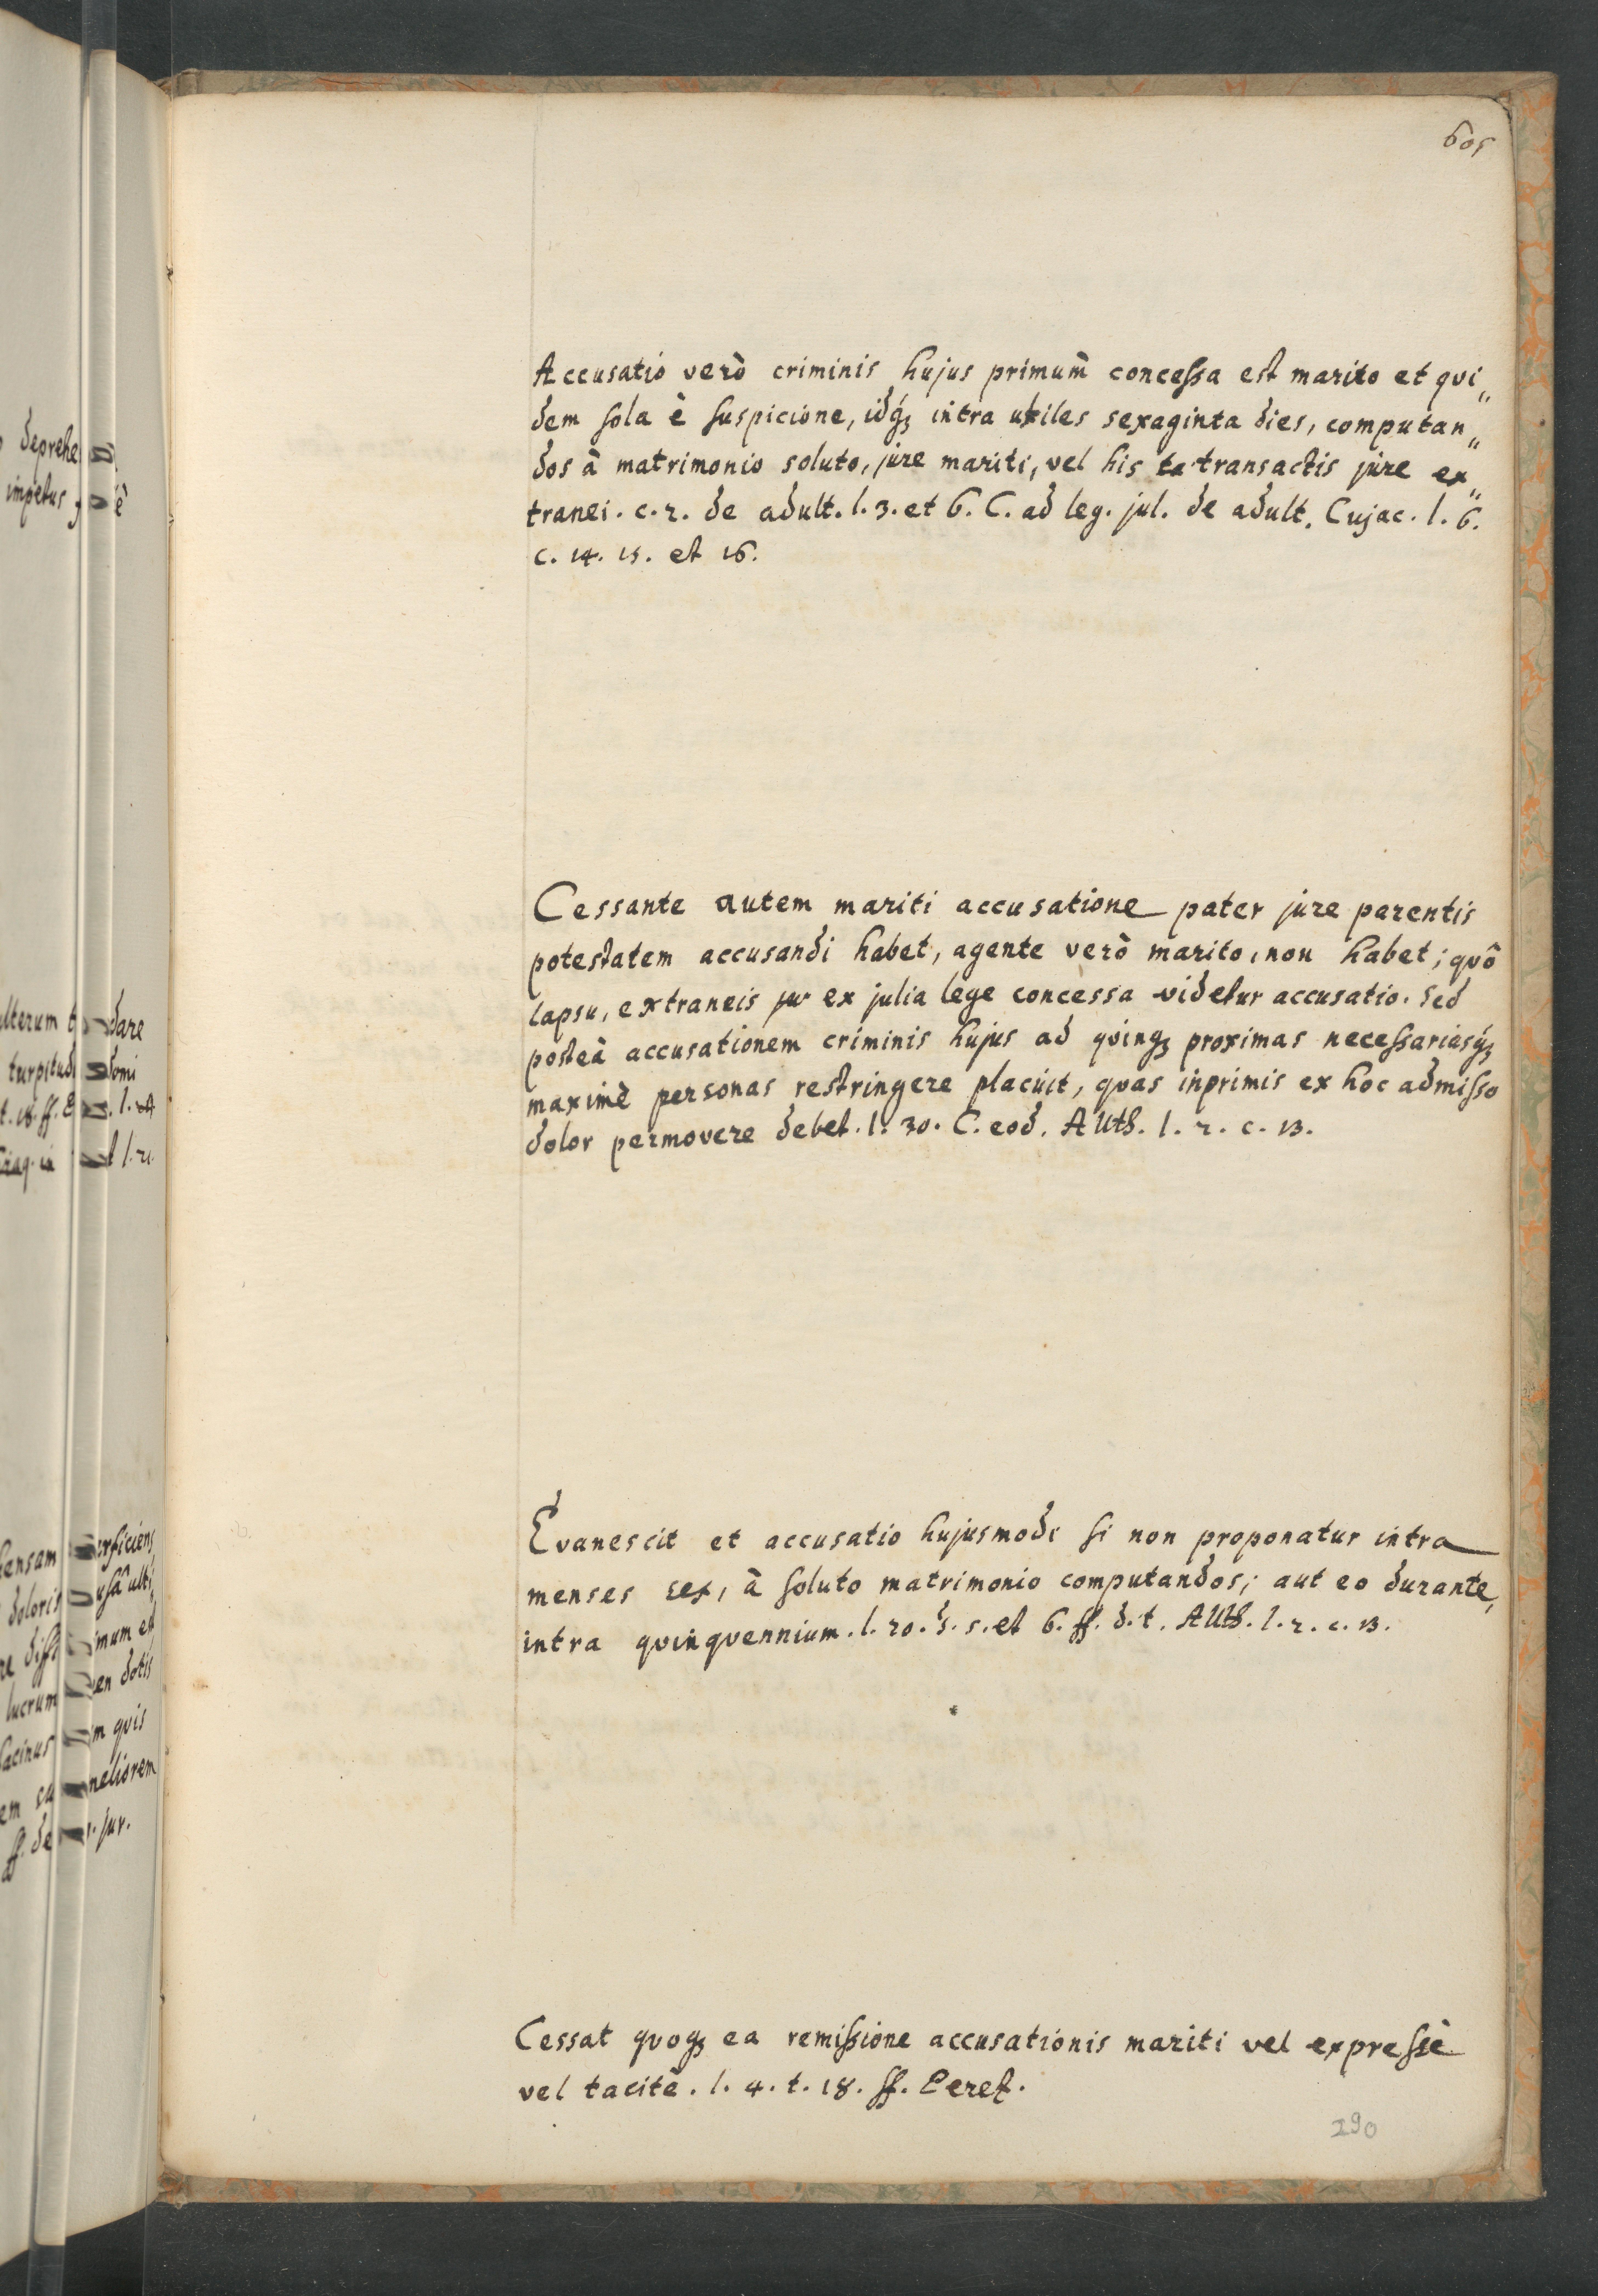 605
Accusatio verò criminis hujus primum̀ concessa est marito et qui„
dem sola è suspicione, idq́ꝫ intra utiles sexaginta dies, computan„
dos à matrimonio soluto, jure mariti, vel his ta transactis jure ex„
tranei. c. 2. de adult. l. 3. et 6. C. ad leg. jul. de adult. Cujac. l. 6.
c. 14. 15. et 16.
Cessante autem mariti accusatione pater jure parentis
potestatem accusandi habet, agente verò marito, non habet; quô
lapsu, extraneis ex julia lege concessa videtur accusatio. Sed
posteà accusationem criminis hujus ad qvinqꝫ proximas necessariasq́ꝫ
maximè personas restringere placuit, qvas inprimis ex hoc admisso
dolor permovere debet. l. 30. C. eod. Auth. l. 2. c. 13.
Evanescit et accusatio hujusmodi si non proponatur intra
menses sex, à soluto matrimonio computandos; aut eo durante,
intra qvinqvennium. l. 20. §. 5. et 6. ff. d. t. Auth. l. 2. c. 13.
Cessat qvoqꝫ ea remissione accusationis mariti vel expressè
vel tacitè. l. 4. t. 18. ff. Perez.
290